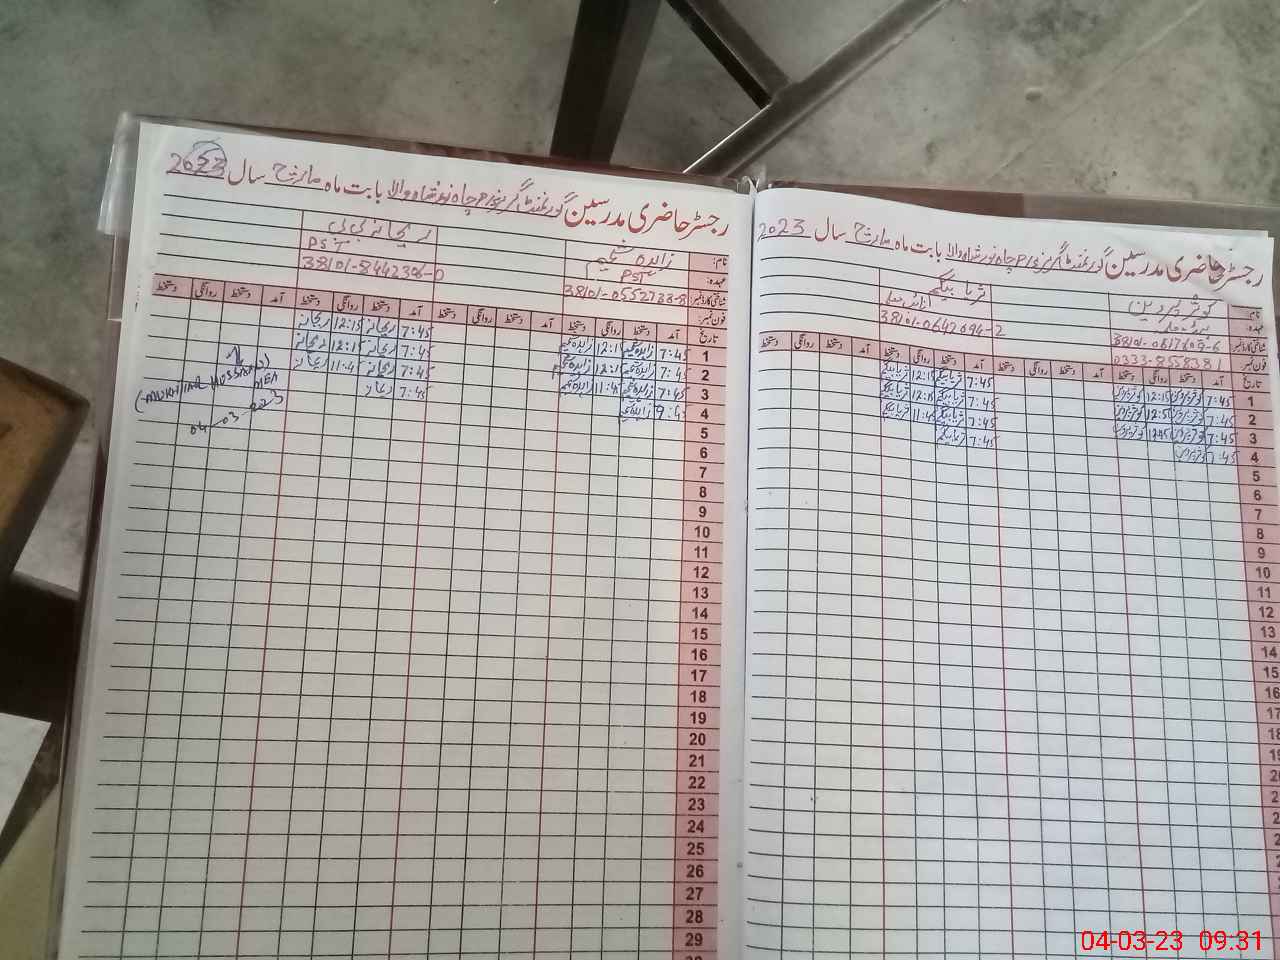 رجسٹر حاضری مدرسین گورنمنٹ گرلز پرائمری چاہ نور شاہ والا بابت ماہ مارچ سال 2023
نام: زاہدہ شمیم ریحانہ بی بی
عہدہ: PST PST
شناختی کارڈ نمبر 38101-0552733-8 38101-8442306-0
فون نمبر:
تاریخ آمد دستخط روانگی دستخط آمد دستخط روانگی دستخط آمد دستخط روانگی دستخط آمد دستخط روانگی دستخط
1 7:45 زاہدہ شمیم 12:15 زاہدہ شمیم 7:45 ریحانہ 12:15 ریحانہ
2 7:45 زاہدہ شمیم 12:15 زاہدہ شمیم 7:45 ریحانہ 12:15 ریحانہ
3 7:45 زاہدہ شمیم 11:45 زاہدہ شمیم 7:45 ریحانہ 11:45 ریحانہ
4 7:45 زاہدہ شمیم 7:45 ریحانہ
(MUKHTIAR HUSSAIN)
MEA
04-03-2023
5
6
7
8
9
10
11
12
13
14
15
16
17
18
19
20
21
22
23
24
25
26
27
28
29
رجسٹر حاضری مدرسین گورنمنٹ گرلز پرائمری چاہ نور شاہ والا بابت ماہ مارچ سال 2023
نام: کوثر پروین ثریا بیگم
عہدہ:
شناختی کارڈ نمبر 38101-0642694-2
فون نمبر: 0333-8558381
تاریخ آمد دستخط روانگی دستخط آمد دستخط روانگی دستخط آمد دستخط روانگی دستخط آمد دستخط روانگی دستخط
1 7:45 کوثر پروین 12:15 کوثر پروین 7:45 ثریا بیگم 12:15 ثریا بیگم
2 7:45 کوثر پروین کوثر پروین 7:45 ثریا بیگم 12:15 ثریا بیگم
3 7:45 کوثر پروین کوثر پروین 7:45 ثریا بیگم 11:45 ثریا بیگم
4 7:45 کوثر پروین 7:45 ثریا بیگم
5
6
7
8
9
10
11
12
13
14
15
16
17
04-03-23 09:31